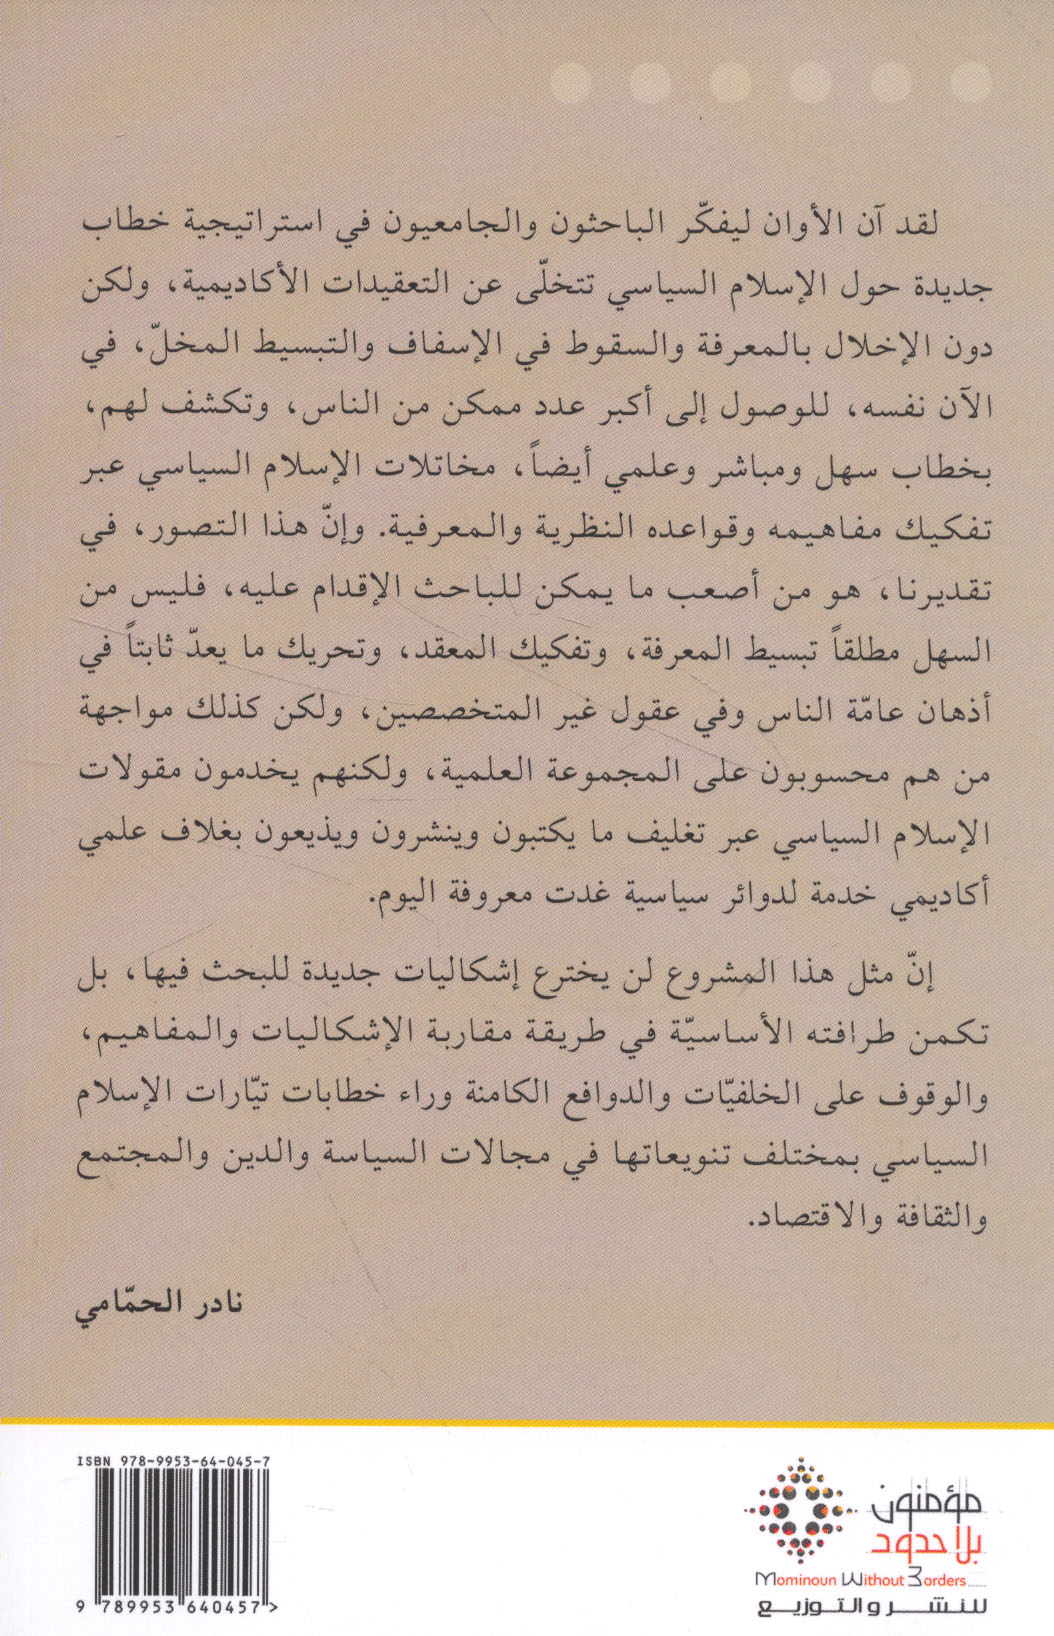 لقد آن الأوان ليفكّر الباحثون والجامعيون في استراتيجية خطاب
جديدة حول الإسلام السياسي تتخلّى عن التعقيدات الأكاديمية، ولكن
دون الإخلال بالمعرفة والسقوط في الإسفاف والتبسيط المخلّ، في
الآن نفسه، للوصول إلى أكبر عدد ممكن من الناس، وتكشف لهم،
بخطاب سهل ومباشر وعلمي أيضاً، مخاتلات الإسلام السياسي عبر
تفكيك مفاهيمه وقواعده النظرية والمعرفية. وإنّ هذا التصور، في
تقديرنا، هو من أصعب ما يمكن للباحث الإقدام عليه، فليس من
السهل مطلقاً تبسيط المعرفة، وتفكيك المعقد، وتحريك ما يعدّ ثابتاً في
أذهان عامّة الناس وفي عقول غير المتخصصين، ولكن كذلك مواجهة
من هم محسوبون على المجموعة العلمية، ولكنهم يخدمون مقولات
الإسلام السياسي عبر تغليف ما يكتبون وينشرون ويذيعون بغلاف علمي
أكاديمي خدمة لدوائر سياسية غدت معروفة اليوم.
إنّ مثل هذا المشروع لن يخترع إشكاليات جديدة للبحث فيها، بل
تكمن طرافته الأساسيّة في طريقة مقاربة الإشكاليات والمفاهيم،
والوقوف على الخلفيّات والدوافع الكامنة وراء خطابات تيّارات الإسلام
السياسي بمختلف تنويعاتها في مجالات السياسة والدين والمجتمع
والثقافة والاقتصاد.
نادر الحمّامي
ISBN 978-9953-64-045-7
9 789953 640457 >
مؤمنون
بلا حدود
Mominoun Without Borders
للنشر والتوزيع